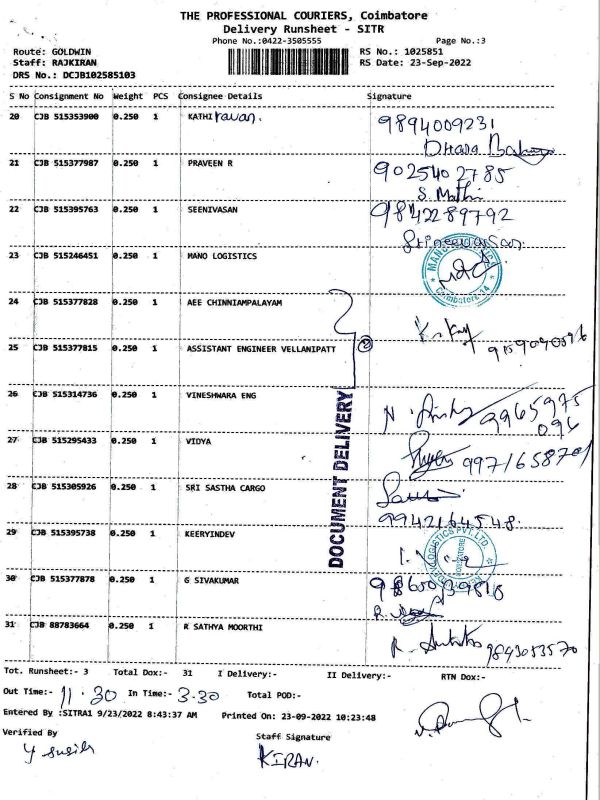 THE PROFESSIONAL COURIERS, Coimbatore
Delivery Runsheet - SITR
Phone No.:0422-3505555 Page No.:3
Route: GOLDWIN RS No.: 1025851
Staff: RAJKIRAN RS Date: 23-Sep-2022
DRS No.: DCJB102585103
S No Consignment No Weight PCS Consignee Details Signature
20 CJB 515353900 0.250 1 KATHIravan. 9894009231
21 CJB 515377987 0.250 1 PRAVEEN R 9025402785
S. Mathi
22 CJB 515395763 0.250 1 SEENIVASAN 9842289792
23 CJB 515246451 0.250 1 MANO LOGISTICS
24 CJB 515377828 0.250 1 AEE CHINNIAMPALAYAM
25 CJB 515377815 0.250 1 ASSISTANT ENGINEER VELLANIPATT 2
26 CJB 515314736 0.250 1 VINESHWARA ENG 9965975
096
27 CJB 515295433 0.250 1 VIDYA
28 CJB 515305926 0.250 1 SRI SASTHA CARGO
9942164548
29 CJB 515395738 0.250 1 KEERYINDEV
30 CJB 515377878 0.250 1 G SIVAKUMAR
31 CJB 88783664 0.250 1 R SATHYA MOORTHI 9843053570
DOCUMENT DELIVERY
Tot. Runsheet:- 3 Total Dox:- 31 I Delivery:- II Delivery:- RTN Dox:-
Out Time:- 11.30 In Time:- 3.30 Total POD:-
Entered By :SITRA1 9/23/2022 8:43:37 AM Printed On: 23-09-2022 10:23:48
Verified By Staff Signature
KIRAN.